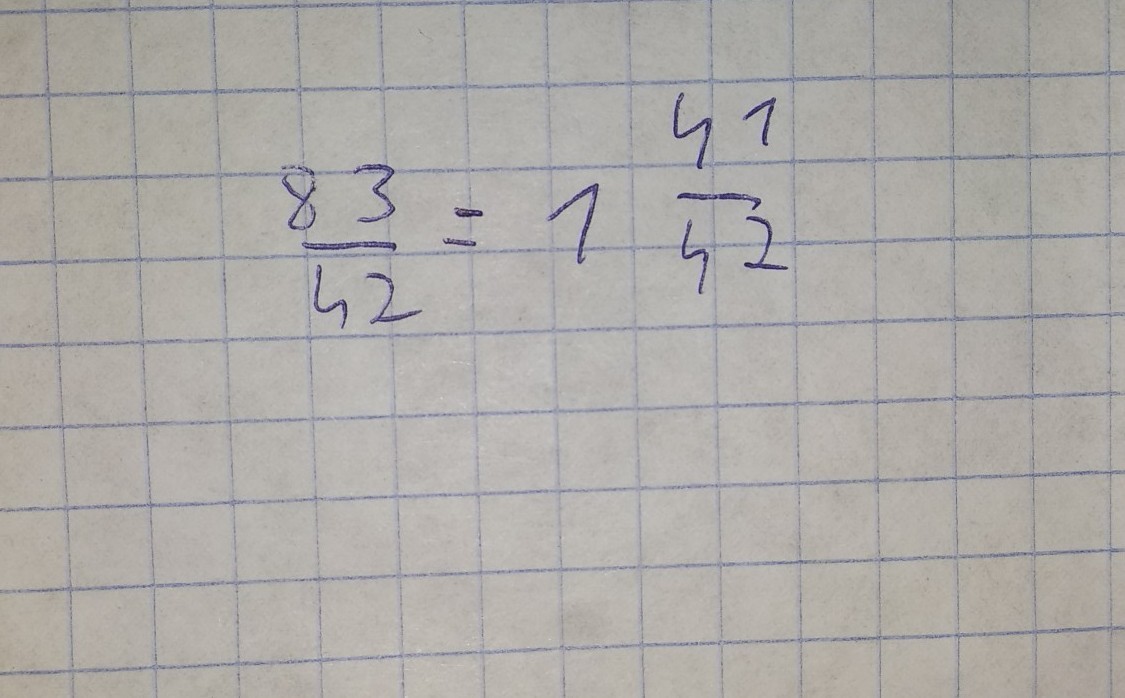 83/42 = 1 41/42